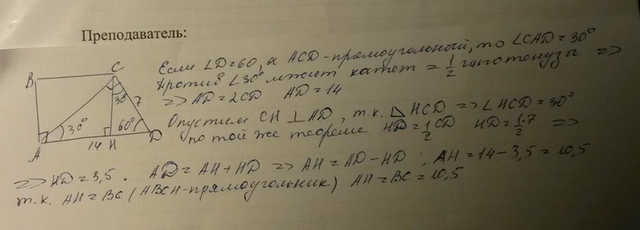 Преподаватель:
Если ∠D=60, а ACD-прямоугольный, то ∠CAD=30°
Против ∠30° лежит катет = 1/2 гипотенузы =>
=> AD=2CD AD=14
Опустим CH ⊥ AD, т.к. △HCD => ∠HCD=30°
по той же теореме HD=1/2 CD HD=1/2·7 =>
=> HD=3,5. AD=AH+HD => AH=AD-HD; AH=14-3,5=10,5
т.к. AH=BC (ABCH-прямоугольник) AH=BC=10,5
B C
30° 7
30° 60°
A 14 H D